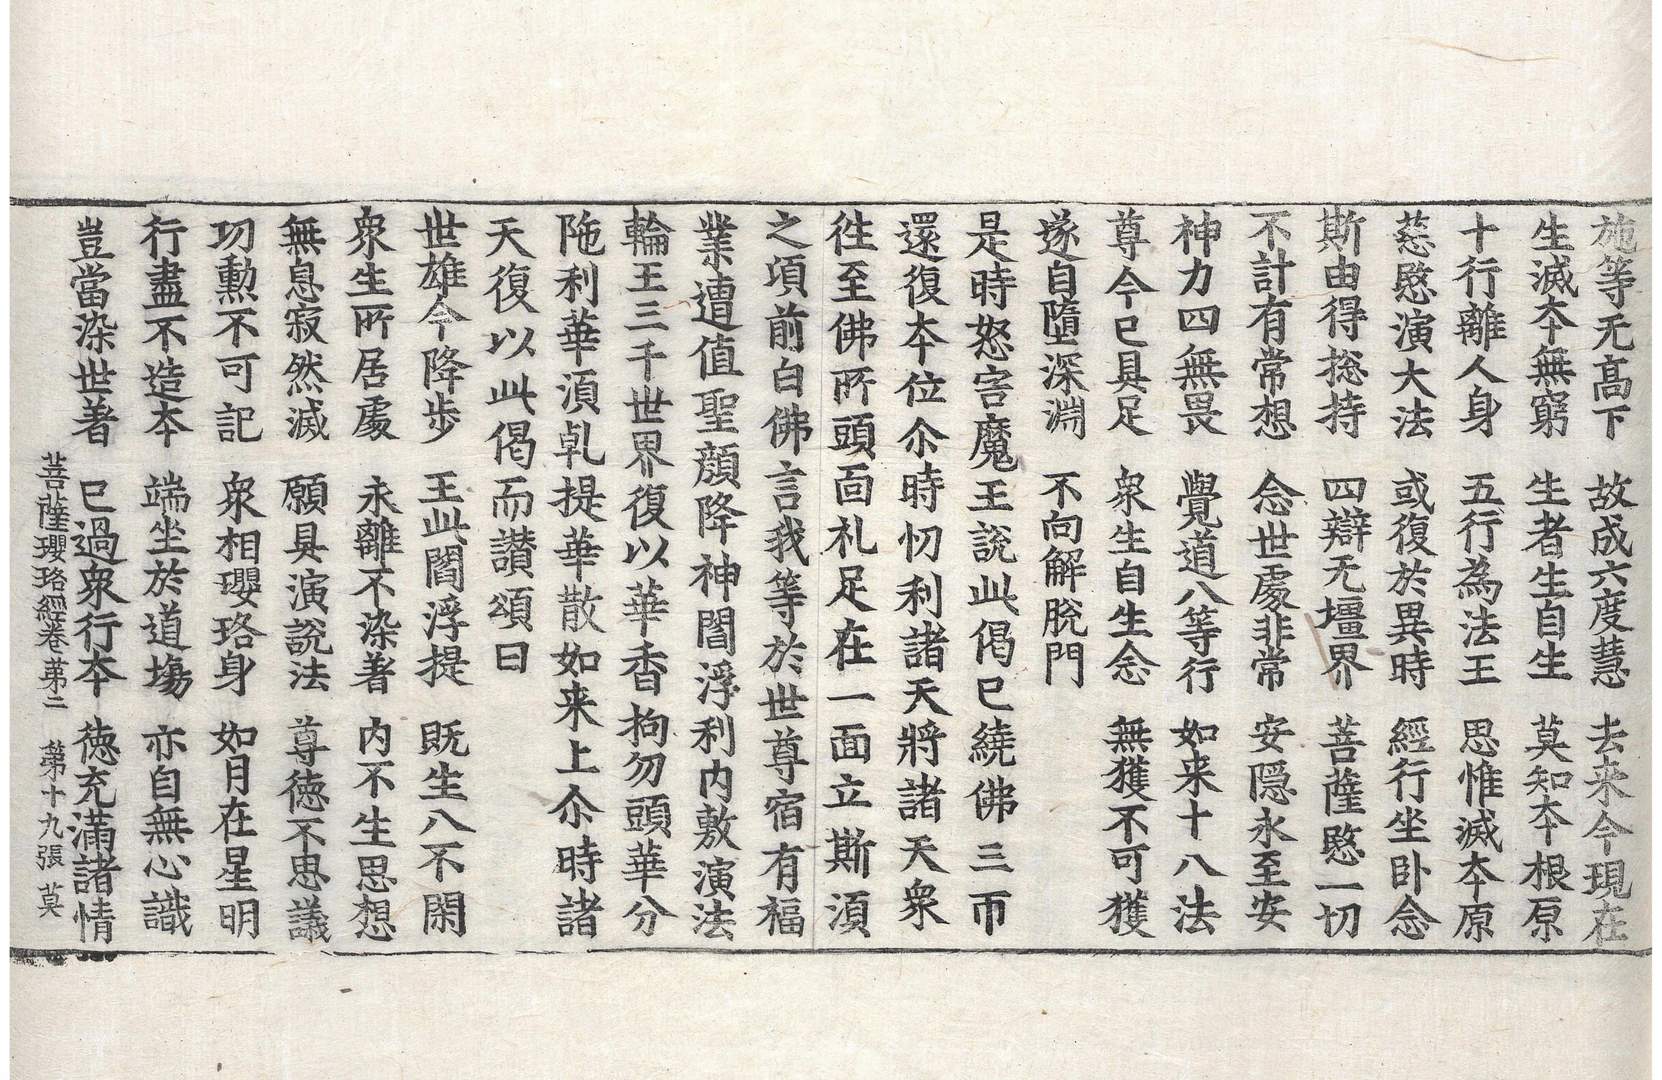 施等无高下　故成六度慧　去来今現在
生滅夲無窮　生者生自生　莫知夲根原
十行離人身　五行為法王　思惟滅夲原
慈愍演大法　或復於異時　經行坐卧念
斯由得捴持　四辯无壃界　菩薩愍一切
不計有常想　念世處非常　安隱永至安
神力四無畏　覺道八等行　如来十八法
尊今已具足　衆生自生念　無獲不可獲
遂自墮深淵　不向解脫門
是時怒害魔王說此偈已繞佛三帀
還復夲位尒時忉利諸天將諸天衆
徃至佛所頭面礼足在一面立斯湏
之頃前白佛言我等於世尊宿有福
業遭值聖顔降神閻浮利內敷演法
輪王三千世界復以華香拘勿頭華分
陁利華湏乹提華散如来上尒時諸
天復以此偈而讃頌曰
世雄今降步　王此閻浮提　既生八不閑
衆生所居處　永離不染著　內不生思想
無息寂然滅　願具演說法　尊徳不思議
功勳不可記　衆相瓔珞身　如月在星明
行盡不造夲　端坐於道塲　亦自無心識
豈當染世著　已過衆行夲　徳充滿諸情
菩薩瓔珞經卷苐二　苐十九張　莫